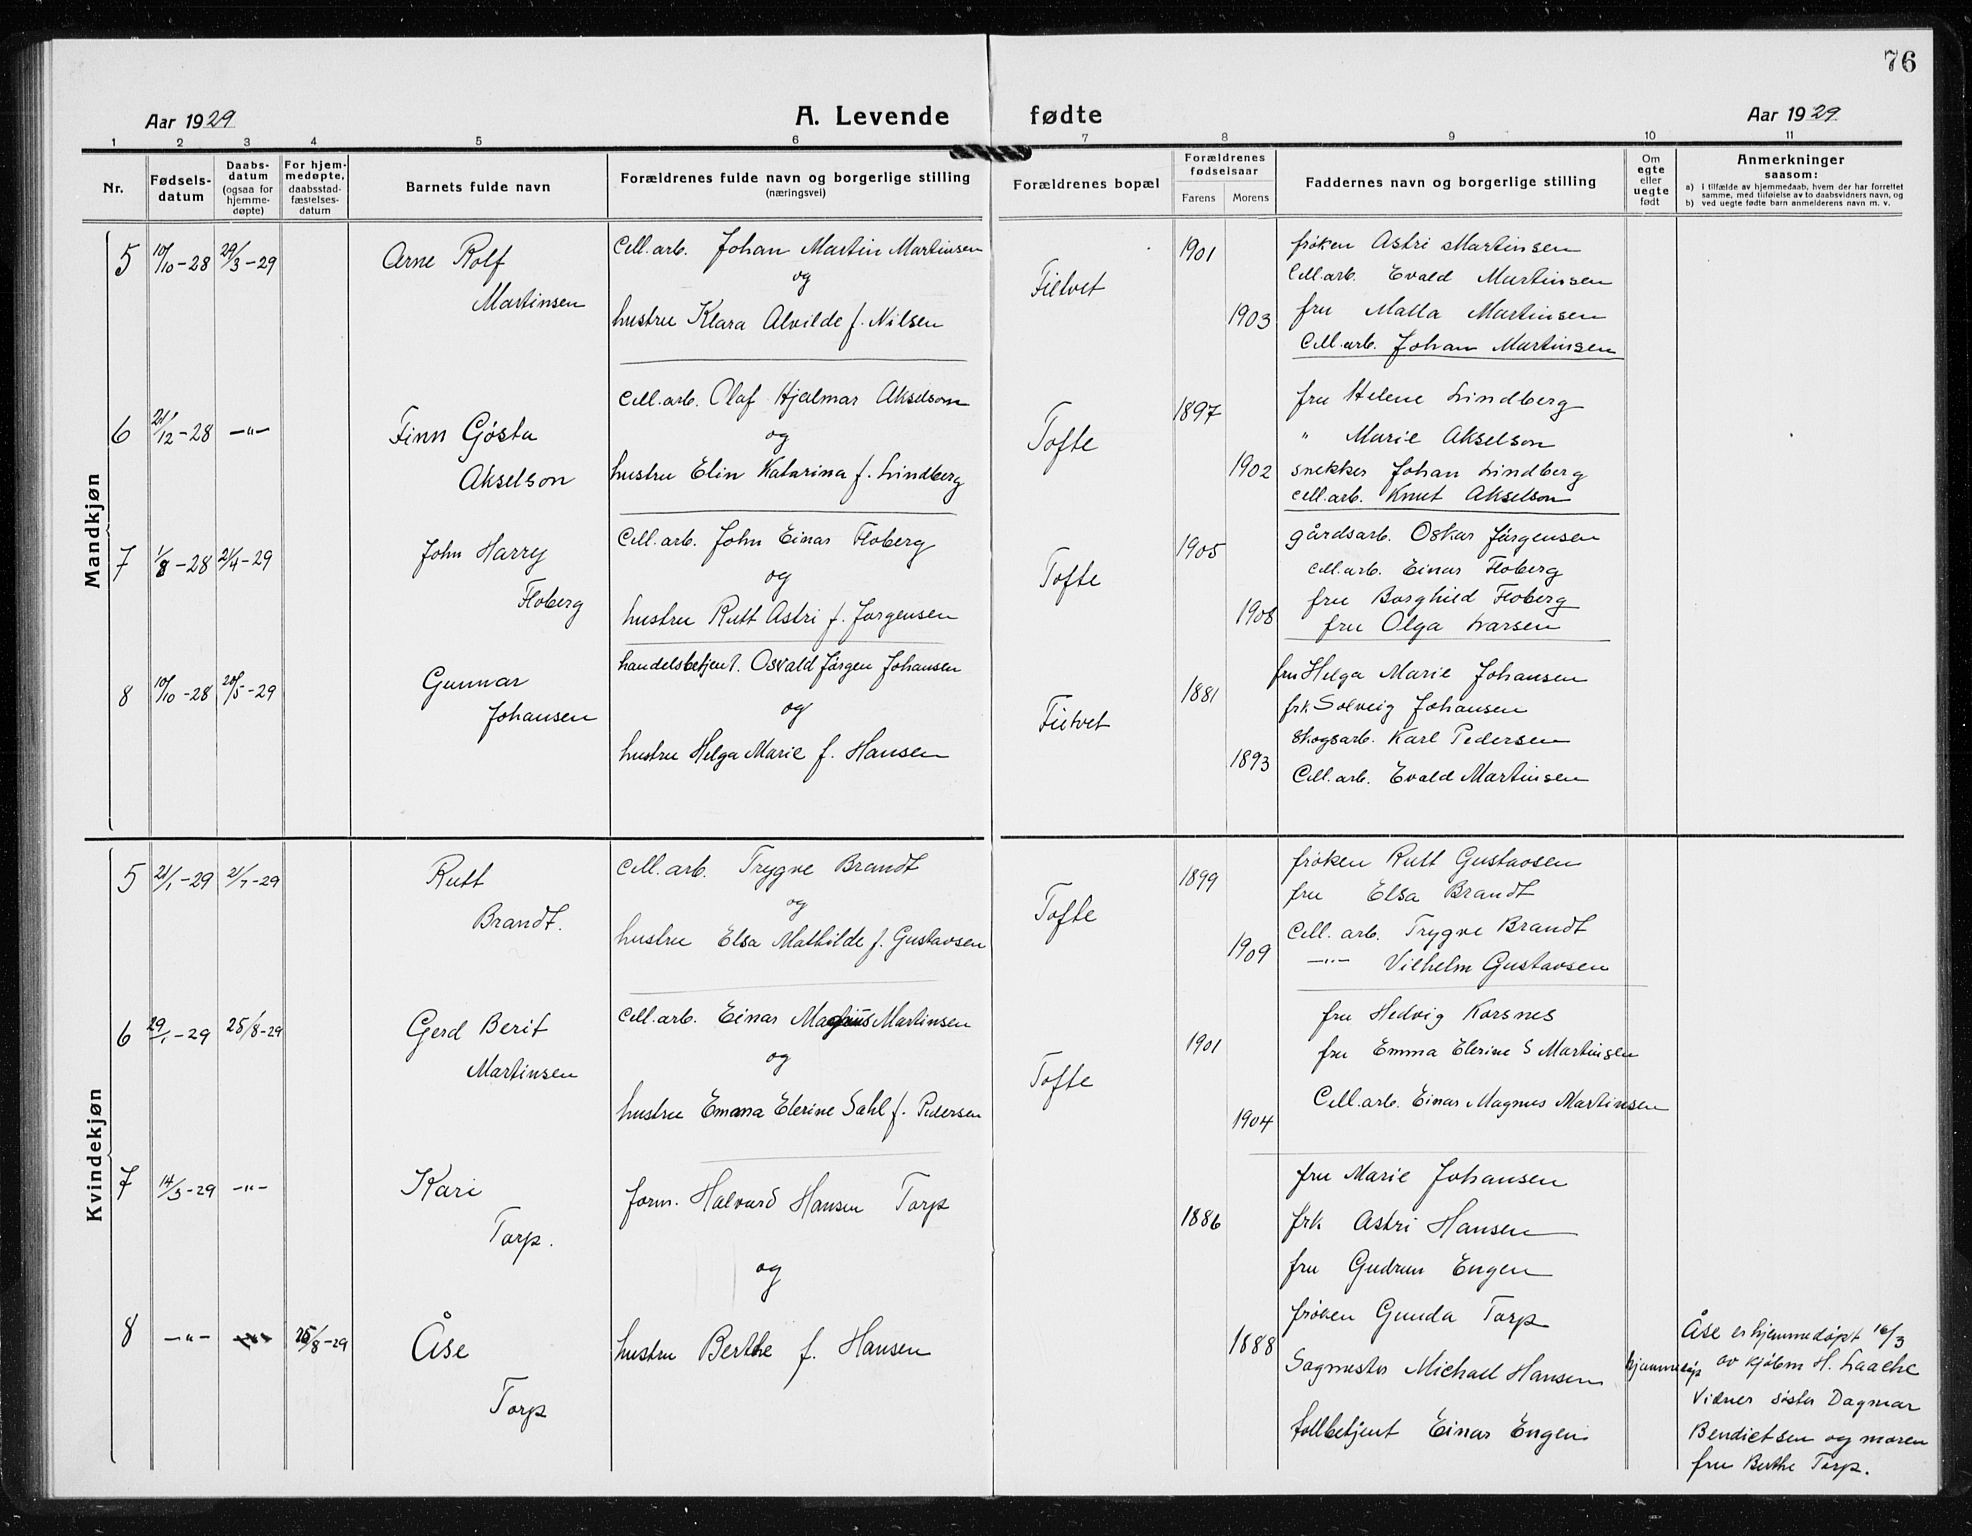 76
Aar 1929 A. Levende fødte Aar 1929
1 2 3 4 5 6 7 8 9 10 11
Nr. Fødselsdatum Daabsdatum (ogsaa for hjemmedøpte) For hjemmedøpte, daabsstadfæstelsesdatum Barnets fulde navn Forældrenes fulde navn og borgerlige stilling (næringsvei) Forældrenes bopæl Forældrenes fødselsaar Farens Morens Faddernes navn og borgerlige stilling Om egte eller uegte født Anmerkninger saasom:
a) i tilfælde av hjemmedaab, hvem der har forrettet samme, med tilføielse av to daabsvidners navn, og
b) ved uegte fødte barn anmelderens navn m. v.
Mandkjøn
5 10/10-28 29/3-29 Arne Rolf Cell.arb. Johan Martin Martinsen Filtvet 1901 frøken Astri Martinsen
og Cell.arb. Evald Martinsen
Martinsen hustru Klara Alvilde f. Nilsen 1903 fru Malla Martinsen
Cell.arb. Johan Martinsen
6 21/12-28 -"- Finn Gösta Cell.arb. Olaf Hjalmar Akselson Tofte 1897 fru Helene Lindberg
og " Marie Akselson
Akselson hustru Elin Katarina f. Lindberg 1902 snekker Johan Lindberg
Cell.arb. Knut Akselson
7 1/8-28 21/4-29 John Harry Cell.arb. John Einar Floberg Tofte 1905 gårdsarb. Oskar Jørgensen
og Cell.arb. Einar Floberg
Floberg hustru Rutt Astri f. Jørgensen 1908 fru Borghild Floberg
fru Olga Larsen
8 10/10-28 20/5-29 Gunnar handelsbetjent. Osvald Jørgen Johansen Filtvet 1881 fru Helga Marie Johansen
Johansen og frk Solveig Johansen
skogsarb. Karl Pedersen
hustru Helga Marie f. Hansen 1893 Cell.arb. Evald Martinsen
Kvindekjøn
5 21/1-29 21/7-29 Rutt Cell.arb. Trygve Brandt Tofte 1899 frøken Rutt Gustavsen
og fru Elsa Brandt
Brandt. hustru Elsa Mathilde f. Gustavsen 1909 Cell. arb. Trygve Brandt
-"- Vilhelm Gustavsen
6 29/1-29 25/8-29 Gerd Berit Cell.arb. Einar Magnus Martinsen Tofte 1901 fru Hedvig Korsnes
Martinsen og fru Emma Elerine S Martinsen
hustru Emma Elerine Sahl f. Pedersen 1904 Cell.arb. Einar Magnus Martinsen
7 14/3-29 -"- Kari form. Halvard Hansen Torp 1886 fru Marie Johansen
Torp. frk Astri Hansen
og fru Gudrun Engen
frøken Gunda Torp
8 -"- 25/8-29 Åse hustru Berthe f. Hansen 1888 Sagmester Michael Hansen hjemmedøpt Åse er hjemmedøpt 16/3
av kjøbm H. Laache
Torp tollbetjent Einar Engen Vidner søster Dagmar
Bendictsen og moren
fru Berthe Torp.